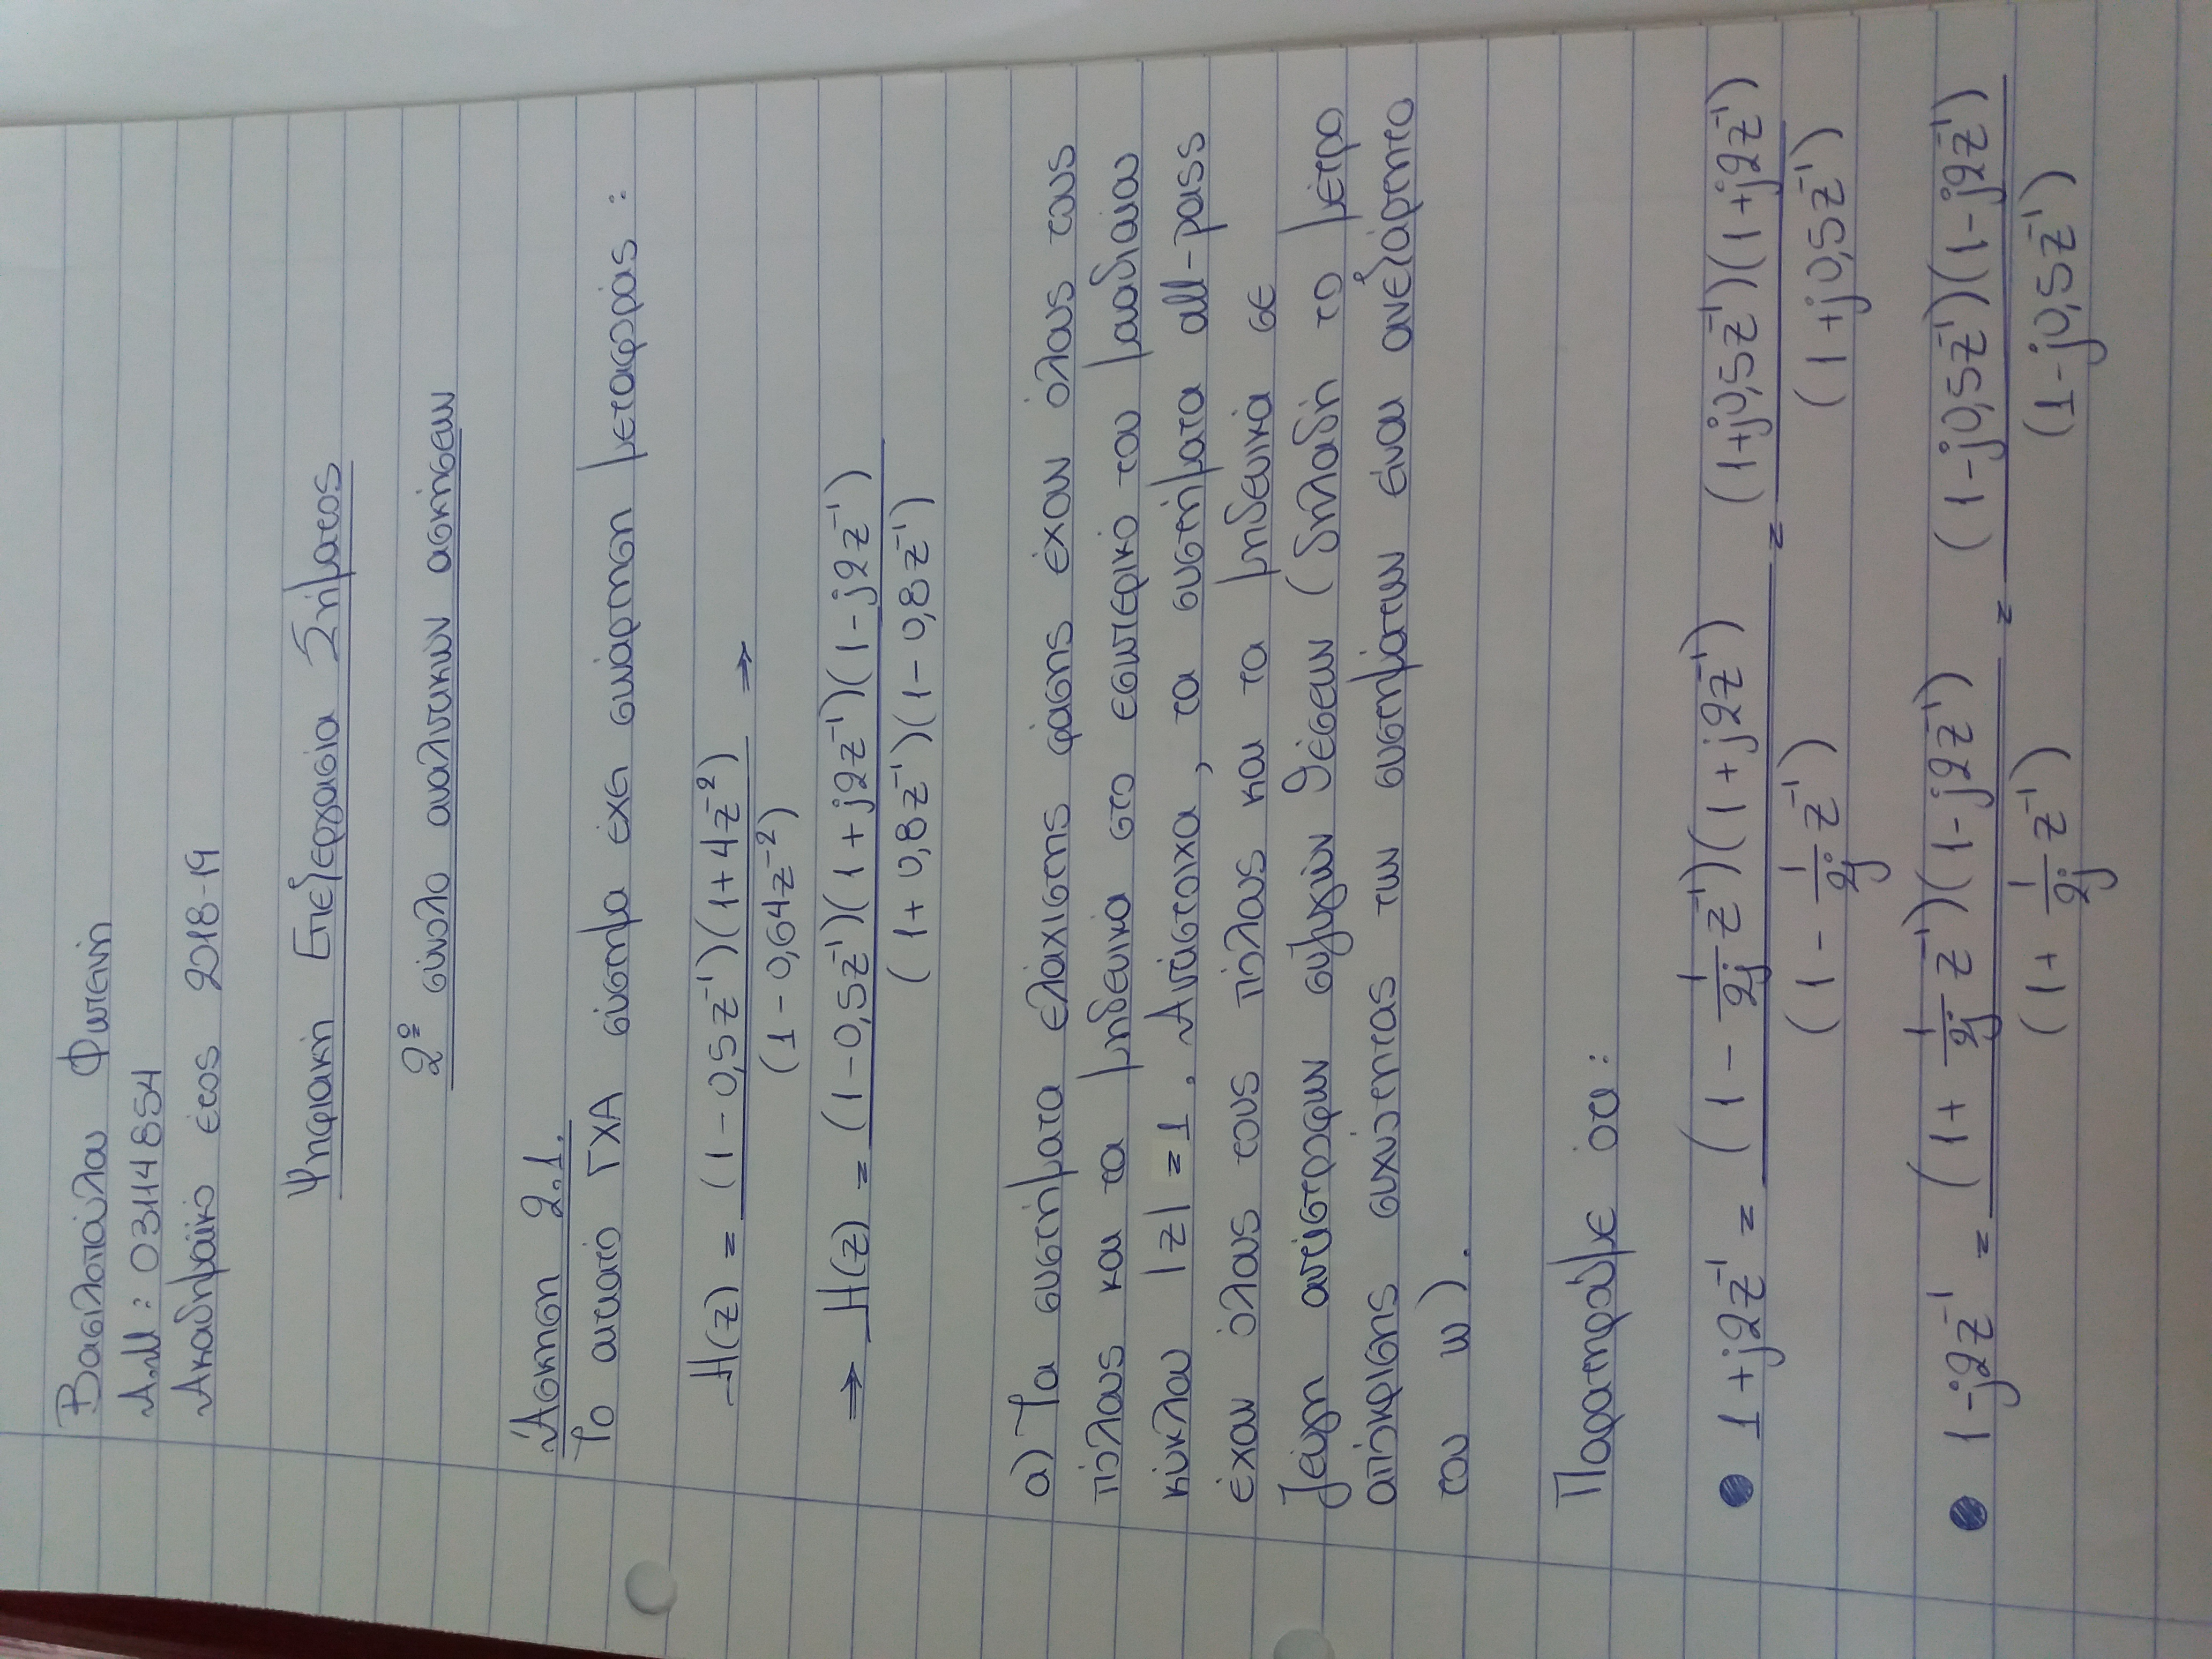 Βασιλοπούλου Φωτεινή
Α.Μ : 03114854
Ακαδημαϊκό έτος 2018-19
Ψηφιακή Επεξεργασία Σήματος
2º σύνολο αναλυτικών ασκήσεων
Άσκηση 2.1.
Το αιτιατό ΓΧΑ σύστημα έχει συνάρτηση μεταφοράς :
H(z) = (1 - 0,5z⁻¹)(1 + 4z⁻²) / (1 - 0,64z⁻²) ⇒
⇒ H(z) = (1 - 0,5z⁻¹)(1 + j2z⁻¹)(1 - j2z⁻¹) / (1 + 0,8z⁻¹)(1 - 0,8z⁻¹)
α) Τα συστήματα ελάχιστης φάσης έχουν όλους τους
πόλους και τα μηδενικά στο εσωτερικό του μοναδιαίου
κύκλου |z| = 1 . Αντίστοιχα , τα συστήματα all-pass
έχουν όλους τους πόλους και τα μηδενικά σε
ζεύγη αντίστροφων συζυγών θέσεων (δηλαδή το μέτρο
απόκρισης συχνότητας των συστημάτων είναι ανεξάρτητο
του ω) .
Παρατηρούμε ότι :
• 1 + j2z⁻¹ = (1 - 1/2j z⁻¹)(1 + j2z⁻¹) / (1 - 1/2j z⁻¹) = (1 + j0,5z⁻¹)(1 + j2z⁻¹) / (1 + j0,5z⁻¹)
• 1 - j2z⁻¹ = (1 + 1/2j z⁻¹)(1 - j2z⁻¹) / (1 + 1/2j z⁻¹) = (1 - j0,5z⁻¹)(1 - j2z⁻¹) / (1 - j0,5z⁻¹)